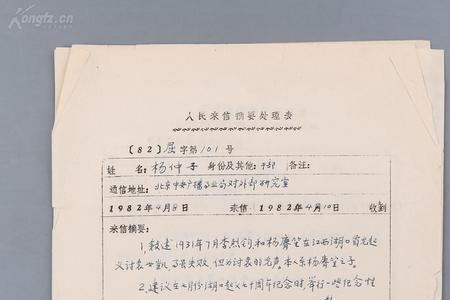 Kongfz.cn
人民来信摘要处理表
〔82〕屈字第101号
姓名: 杨仲子 身份及其他: 干部 备注:
通信地址: 北京中央广播事业局对外部研究室
1982年4月8日 来信 1982年4月10日 收到
来信摘要:
1.叙述1931年7月李烈钧和杨赓笙在江西湖口首先起
义讨袁世凯,了虽失败,但为讨袁的先声。本人系杨赓笙之子。
2.建议在七月份湖口起义七十周年纪念时,举行一些纪念性